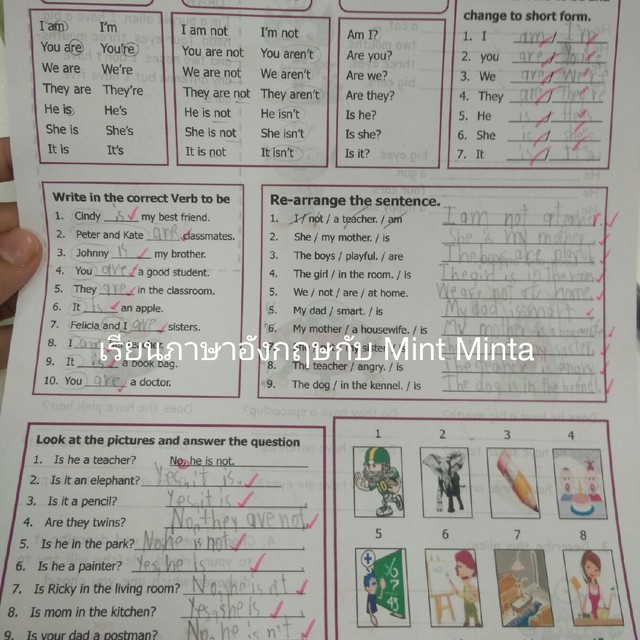 change to short form.
I am I'm
You are You're
We are We're
They are They're
He is He's
She is She's
It is It's
I am not I'm not
You are not You aren't
We are not We aren't
They are not They aren't
He is not He isn't
She is not She isn't
It is not It isn't
Am I?
Are you?
Are we?
Are they?
Is he?
Is she?
Is it?
1. I am / I'm
2. you are / You're
3. We are / We're
4. They are / They're
5. He is / He's
6. She is / She's
7. It is /
Write in the correct Verb to be
1. Cindy is my best friend.
2. Peter and Kate are classmates.
3. Johnny is my brother.
4. You are a good student.
5. They are in the classroom.
6. It is an apple.
7. Felicia and I are sisters.
8. I am
9. It is a book bag.
10. You are a doctor.
Re-arrange the sentence.
1. I / not / a teacher. / am I am not a teacher.
2. She / my mother. / is She is my mother
3. The boys / playful. / are The boys are playful
4. The girl / in the room. / is The girl is in the room
5. We / not / are / at home. We are not at home
6. My dad / smart. / is My dad is smart
6. My mother / a housewife. / is My mother is a housewife
8. The teacher / angry. / is The teacher is angry
9. The dog / in the kennel. / is The dog is in the kennel
เรียนภาษาอังกฤษกับ Mint Minta
Look at the pictures and answer the question
1. Is he a teacher? No, he is not.
2. Is it an elephant? Yes, it is.
3. Is it a pencil? Yes, it is
4. Are they twins? No, they are not
5. Is he in the park? No he is not
6. Is he a painter? Yes he is
7. Is Ricky in the living room? No, he is not
8. Is mom in the kitchen? Yes, she is
9. Is your dad a postman? No, he is not
1 2 3 4
5 6 7 8